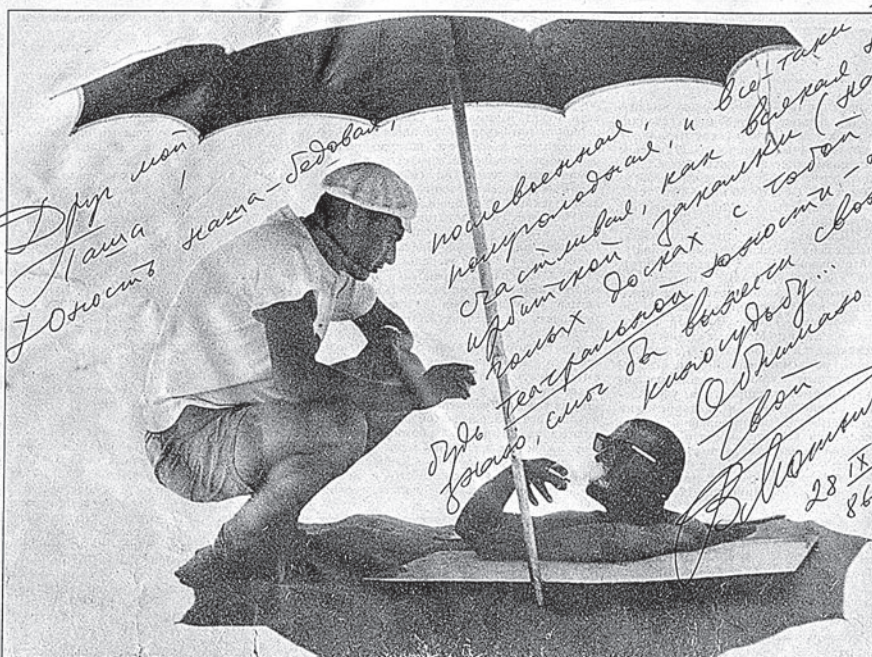 Друг мой
Паша!
Юность наша-бедовая,
послевоенная,
полуголодная, и все-таки
счастливая, как всякая
ирбитской закалки (на
голых досках с тобой
будь театральной юности-
знаю, смог бы вынести свою
киносудьбу...
Обнимаю
Твой
28 IX
86